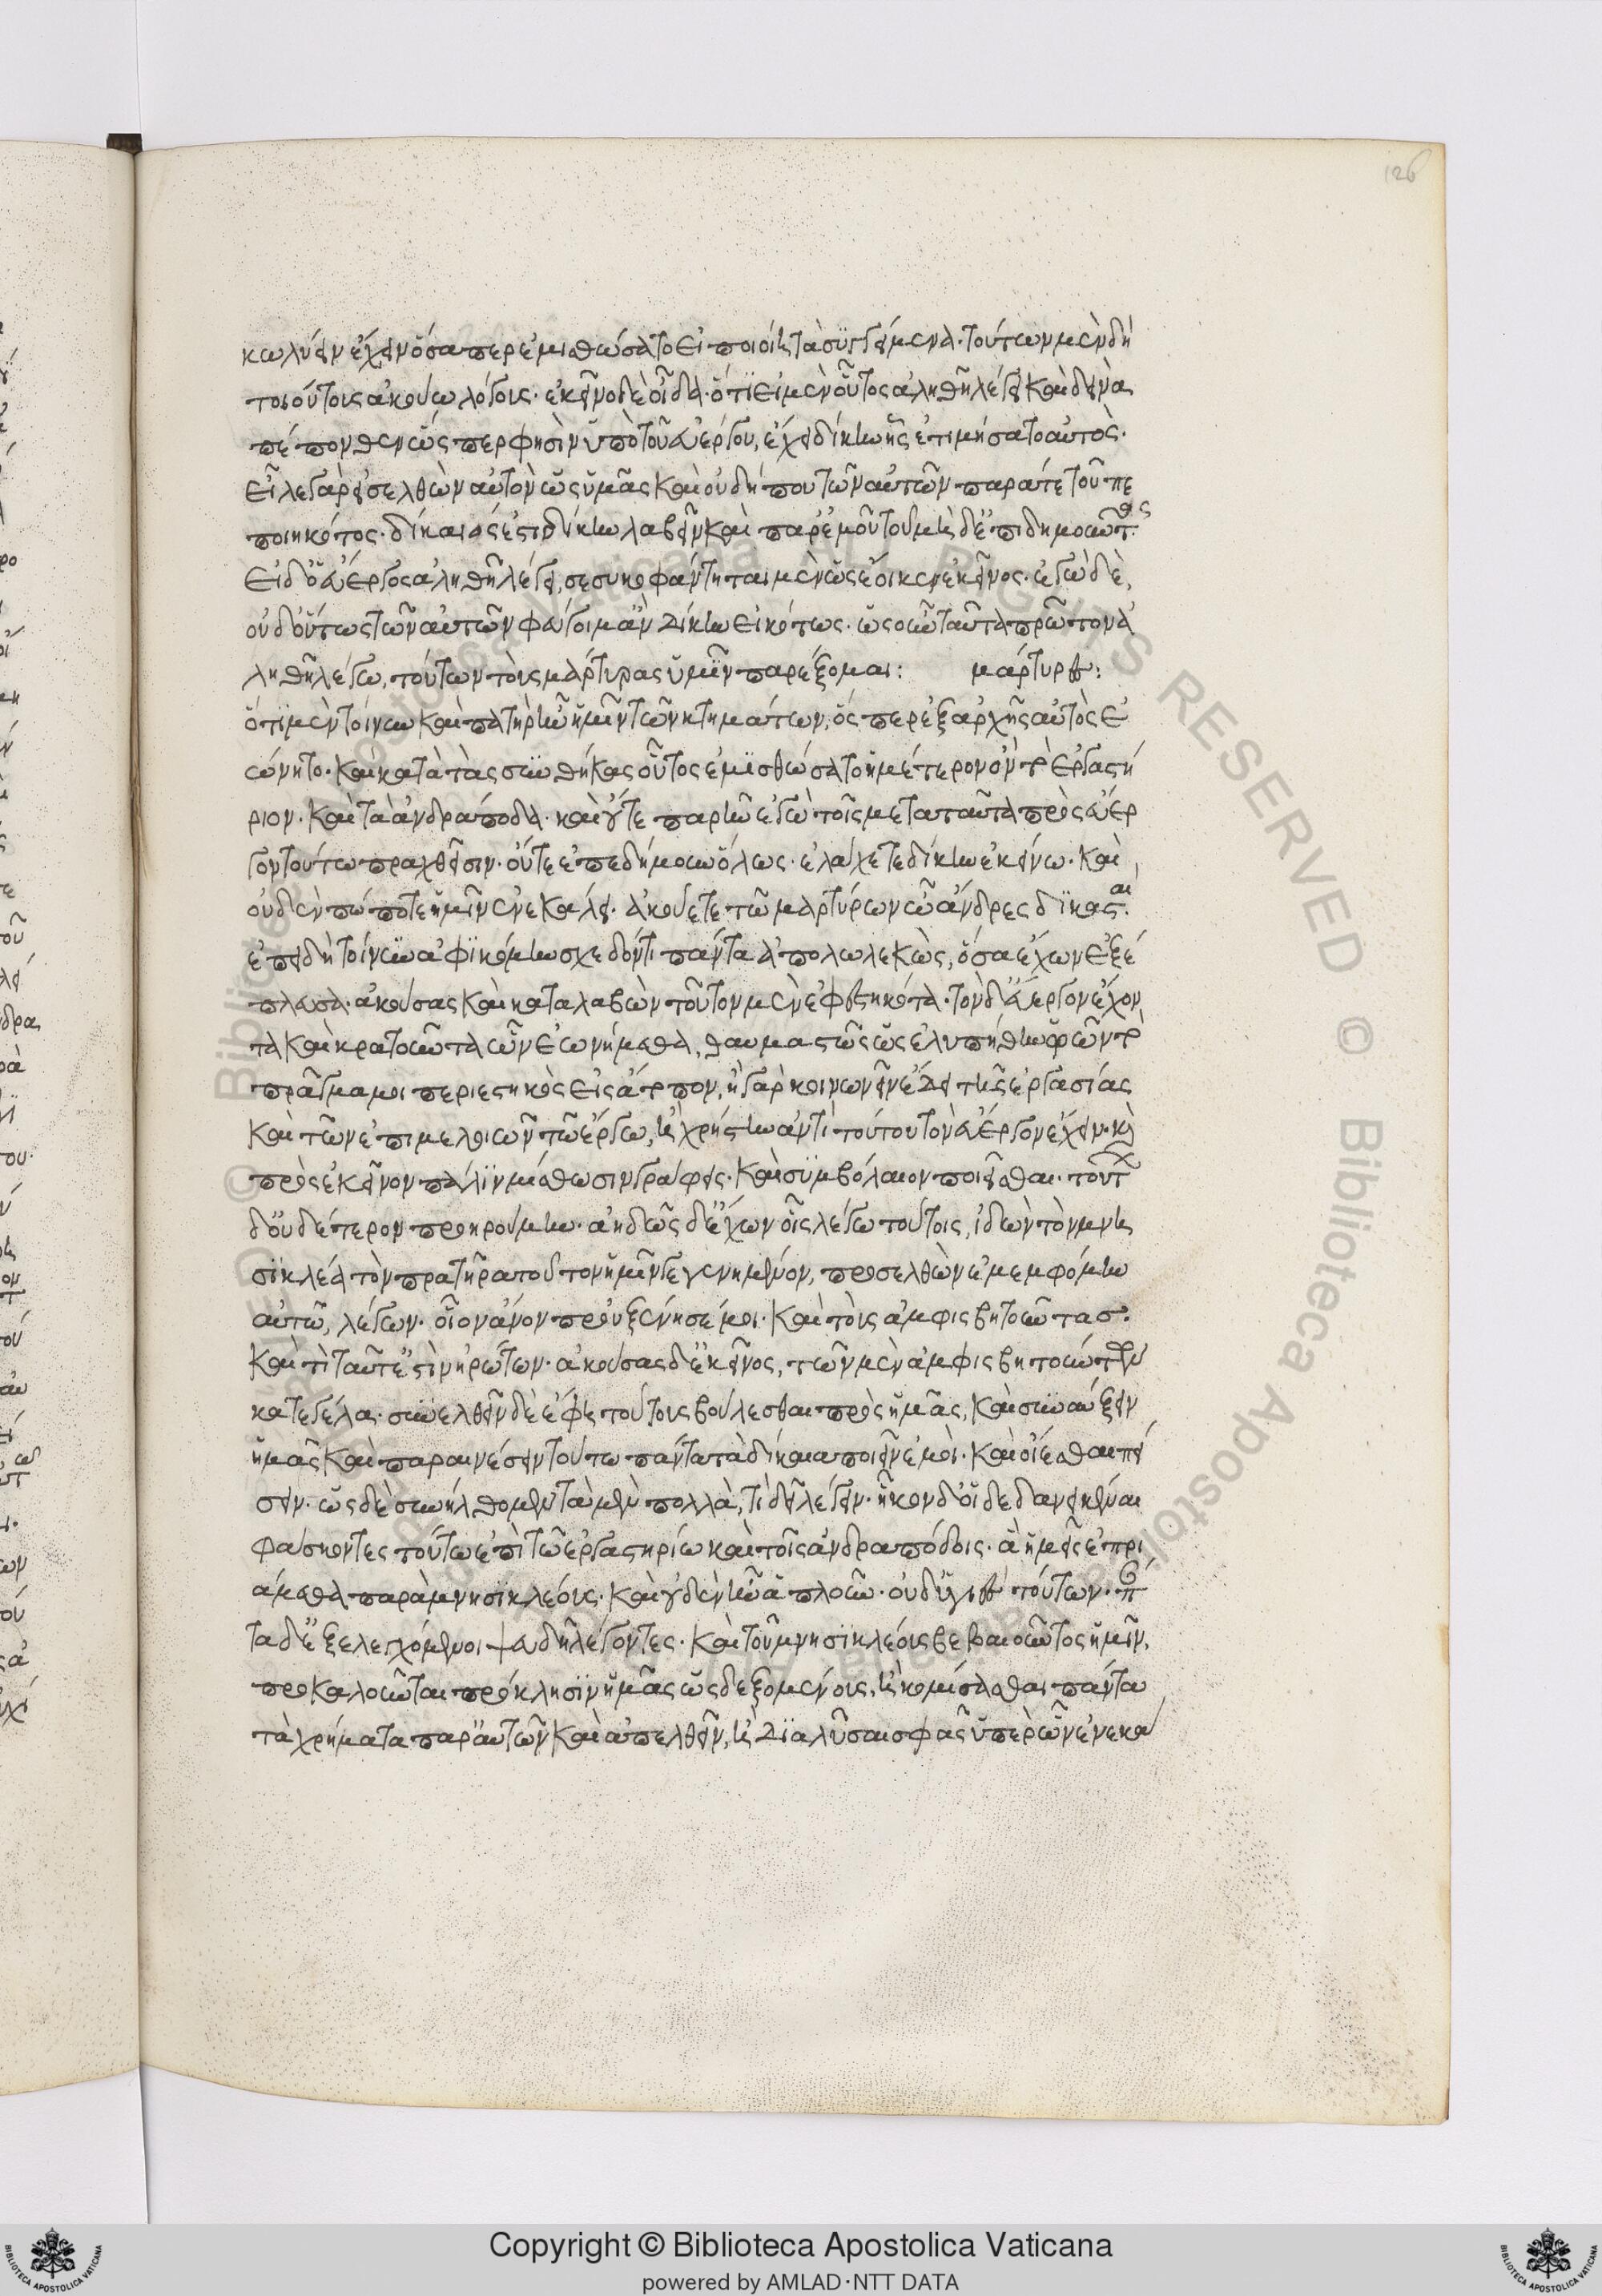 126
κωλύειν ἔχειν ὅσα περ ἐμισθώσατο εἰ ποιοίη τὰ συγκείμενα. τούτων μὲν δὴ
τοιούτοις ἀκούω λόγοις. ἐκεῖνο δὲ οἶδα. ὅτι εἰ μὲν οὗτος ἀληθῆ λέγει καὶ δεινὰ
πέπονθεν ὥς περ φησὶν ὑπὸ τοῦ εὐέργου, ἔχει δίκην ἧς ἐτιμήσατο αὐτός.
εἷλε γὰρ εἰσελθὼν αὐτὸν ὡς ὑμᾶς καὶ οὐ δή που τῶν αὐτῶν παρά τε τοῦ πε
ποιηκότος. δίκαιός ἐστι δίκην λαβεῖν καὶ παρ' ἐμοῦ τοῦ μηδ' ἐπιδημοῦντος.
εἰ δ' ὁ εὔεργος ἀληθῆ λέγει, σεσυκοφάντηται μὲν ὡς ἔοικεν ἐκεῖνος. ἐγὼ δὲ,
οὐδ' οὕτως τῶν αὐτῶν φεύγοιμ' ἂν δίκην εἰκότως. ὡς οὖν ταῦτα πρῶτον ἀ
ληθῆ λέγω, τούτων τοὺς μάρτυρας ὑμῖν παρέξομαι: μάρτυρες:
ὅτι μὲν τοίνυν καὶ πρατὴρ ἦν ἡμῖν τῶν κτημάτων, ὅς περ ἐξ ἀρχῆς αὐτὸς ἐ
ώνητο. καὶ κατὰ τὰς συνθήκας οὗτος ἐμισθώσατο ἡμέτερον ὂν τὸ ἐργαστή
ριον. καὶ τὰ ἀνδράποδα. καὶ οὔτε παρῆν ἐγὼ τοῖς μετὰ ταῦτα πρὸς εὔερ
γον τούτω πραχθεῖσιν. οὔτε ἐπεδήμουν ὅλως. ἔλαχέ τε δίκην ἐκείνω. καὶ
οὐδὲν πώποτε ἡμῖν ἐνεκάλει. ἀκούετε τῶν μαρτύρων ὦ ἄνδρες δικασταί.
ἐπειδὴ τοίνυν ἀφικόμην σχεδόν τι πάντα ἀπολωλεκὼς, ὅσα ἔχων ἐξέ
πλευσα. ἀκούσας καὶ καταλαβὼν τοῦτον μὲν ἐφεστηκότα. τὸν δ' εὔεργον ἔχον
τα καὶ κρατοῦντα ὧν ἐωνήμεθα, θαυμαστῶς ὡς ἐλυπήθην ὁρῶν τὸ
πρᾶγμά μοι περιεστηκὸς εἰς ἄτοπον, ἢ γὰρ κοινωνεῖν ἔδει τῆς ἐργασίας
καὶ τῶν ἐπιμελειῶν τῶ εὐέργω, ἢ χρήστην ἀντὶ τούτου τὸν εὔεργον ἔχειν. καὶ
πρὸς ἐκεῖνον πάλιν μίσθωσιν γράφειν. καὶ συμβόλαιον ποιεῖσθαι. τούτων
δ' οὐδέτερον προηρούμην. ἀηδῶς δ' ἔχων οἷς λέγω τούτοις, ἰδὼν τὸν μνη
σικλέα τὸν πρατῆρα τούτων ἡμῖν γεγενημένον, προσελθὼν ἐμεμφόμην
αὐτῶ, λέγων. οἷον ἄνθρωπον προὐξένησέ μοι. καὶ τοὺς ἀμφισβητοῦντας.
καὶ τί ταῦτ' ἐστὶν ἠρώτων. ἀκούσας δ' ἐκεῖνος, τῶν μὲν ἀμφισβητούντων
κατεγέλα. συνελθεῖν δὲ ἔφη τούτους βούλεσθαι πρὸς ἡμᾶς, καὶ συνάξειν
ἡμᾶς καὶ παραινέσειν τούτω πάντα τὰ δίκαια ποιεῖν ἐμοί. καὶ οἴεσθαι πεί
σειν. ὡς δὲ συνήλθομεν τὰ μὲν πολλὰ, τί δεῖ λέγειν. ἧκον δ' οἱ δεδανεικέναι
φάσκοντες τούτω ἐπὶ τῶ ἐργαστηρίω καὶ τοῖς ἀνδραπόδοις. ἃ ἡμεῖς ἐπρι
άμεθα παρὰ μνησικλέους. καὶ οὐδὲν ἦν ἁπλοῦν. οὐδ' ὑγιὲς τούτων. πάν
τα δ' ἐξελεγχόμενοι ψευδῆ λέγοντες. καὶ τοῦ μνησικλέους βεβαιοῦντος ἡμῖν,
προκαλοῦνται πρόκλησιν ἡμᾶς ὡς δεξομένους, ἢ κομίσασθαι πάντα
τὰ χρήματα παρ' αὐτῶν καὶ ἀπελθεῖν, ἢ διαλῦσαι σφᾶς ὑπὲρ ὧν ἐνεκά
Copyright © Biblioteca Apostolica Vaticana
powered by AMLAD·NTT DATA